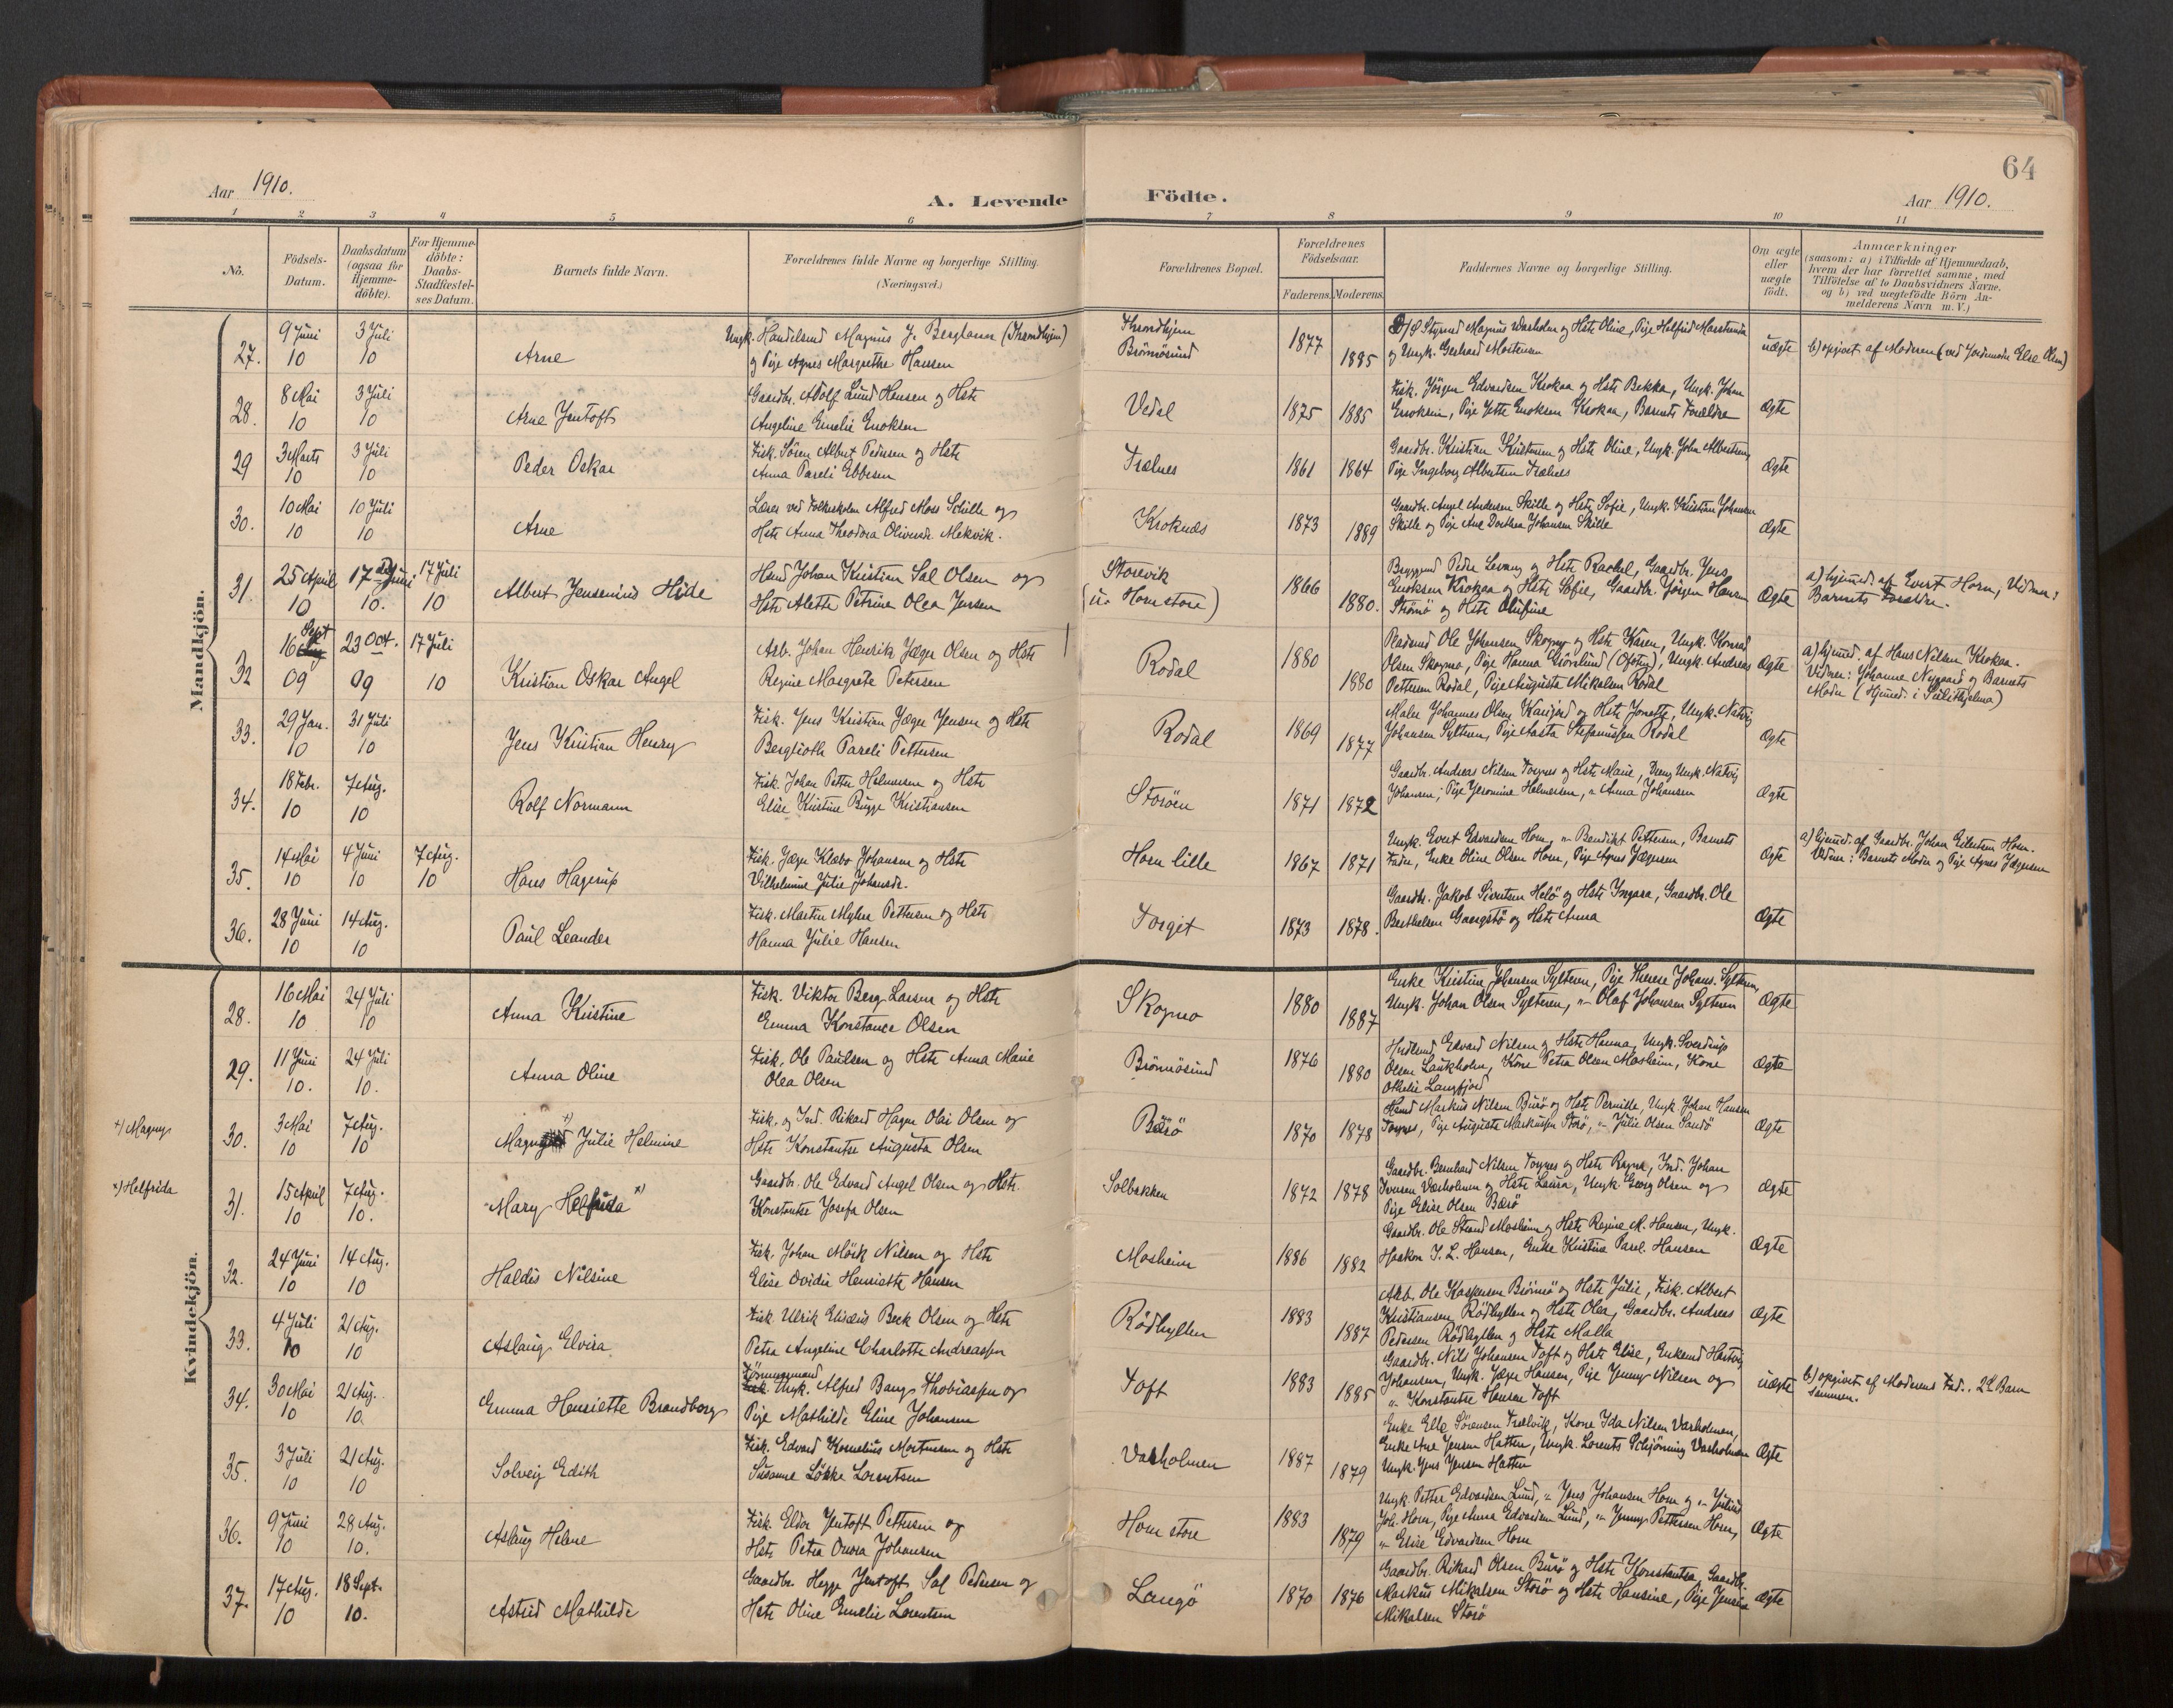 64
Aar 1910.
A. Levende Födte.
Aar 1910.
1 2 3 4 5 6 7 8 9 10 11
No.
Födsels-Datum.
Daabsdatum (ogsaa for Hjemme-döbte).
For Hjemme-döbte: Daabs-Stadfæstel-ses Datum.
Barnets fulde Navn.
Forældrenes fulde Navne og borgerlige Stilling.
(Næringsvei.)
Forældrenes Bopæl.
Forældrenes Födselsaar.
Faderens. Moderens.
Faddernes Navne og borgerlige Stilling.
Om ægte eller uægte födt.
Anmærkninger
(saasom: a) i Tilfælde af Hjemmedaab, hvem der har forrettet samme, med Tilföielse af to Daabsvidners Navne, og b) ved uægtefödte Börn An-melderens Navn m. V.)
Mandkjön.
27. 9 Juni 10 3 Juli 10 Arne
Ungk. Handelsmd Magnus J. (Throndhjem)
og Pige Agnes Margrethe Hansen
Throndhjem
Brönnösund
1877 1885
D/S Styrmd Magnus Varholm og Hstr Oline, Pige Helfrid
og Ungk. Gerhard Mortensen
uægte
b) opgivet af Moderen (ved Jordemoder Else Olsen)
28. 8 Mai 10 3 Juli 10 Arne Jentoft
Gaardbr. Adolf Lund Hansen og Hstr
Angeline Emelie Enoksen
Vedal 1875 1885
Fisk. Jörgen Edvardsen Krokaa og Hstr Bekka, Ungk. Johan
Enoksen, Pige Jette Enoksen Krokaa, Barnets Forældre
Ægte
29 3 Marts 10 3 Juli 10 Peder Oskar
Fisk. Sören Albert Pedersen og Hstr
Anna Pareli Ebbesen
Trælnes 1861 1864
Gaardbr. Kristian Kristensen og Hstr Oline, Ungk. John Albertsen,
Pige Ingeborg Albertsen Trælnes
Ægte
30. 10 Mai 10 10 Juli 10 Arne
Lærer ved Folkeskolen Alfred Moss Schille og
Hstr Anna Theodora Oliversdr. Mekvik.
Kroknes 1873 1889
Gaardbr. Angel Andersen Skille og Hstr Sofie, Ungk. Kristian Johansen
Skille og Pige Ane Dorthea Johansen Skille
Ægte
31. 25 April 10 17 Juni 10. 17 Juli 10 Albert Jensenius Hilde
Hsmd Johan Kristian Sal Olsen og
Hstr Alette Petrine Olea Jensen
Storevik
(u. Hornstore)
1866 1880.
Bryggemd Peder Levang og Hstr Rachel, Gaardbr. Jens
Enoksen Krokaa og Hstr Sofie, Gaardbr. Jörgen Hansen
Strömö og Hstr Olufine
Ægte
a) hjemmed. af Evert Horn, Vidner:
Barnets Forældre.
32 16 Sept 09 23 Oct. 09 17 Juli 10 Kristian Oskar Angel
Arb. Johan Henrik Jæger Olsen og Hstr
Regine Margrete Petersen
Rodal 1880 1880
Pladsmd Ole Johansen Skogmo og Hstr Karen, Ungk. Konrad
Olsen Skogmo, Pige Hanna (Ofoten), Ungk. Andreas
Pettersen Rodal, Pige Augusta Mikalsen Rodal
Ægte
a) hjemmed. af Hans Nilsen Krokaa.
Vidner: Johanne Nygaard og Barnets
Moder (Hjemmed. i Sulithjelma)
33. 29 Jan. 10 31 Juli 10 Jens Kristian Henry
Fisk. Jens Kristian Jæger Jensen og Hstr
Berglioth Pareli Pettersen
Rodal 1869 1877
Maler Johannes Olsen og Hstr Jonette, Ungk. Natvig
Johansen Sylteren, Pige Aasta Stefanussen Rodal
Ægte
34. 18 Febr. 10 7 Aug. 10 Rolf Normann
Fisk. Johan Petter Helmersen og Hstr
Elise Kristine Bugge Kristiansen
Storöen 1871 1872
Gaardbr. Andreas Nilsen Torgnes og Hstr Marie, Ungk. Natvig
Johansen, Pige Jeronime Helmersen, " Anna Johansen
Ægte
35. 14 Mai 10 4 Juni 10 7 Aug. 10 Hans Hagerup
Fisk. Jæger Klæbo Johansen og Hstr
Vilhelmine Julie Johansdr.
Horn lille 1867 1871
Ungk. Evert Edvardsen Horn, " Bendikt Pettersen, Barnets
Fader, Enke Oline Olsen Horn, Pige Agnes Jægersen
Ægte
a) hjemmed. af Gaardbr. Johan Eilertsen Horn.
Vidner: Barnets Moder og Pige Agnes Jægersen
36. 28 Juni 10 14 Aug. 10 Paul Leander
Fisk. Martin Myhre Pettersen og Hstr
Hanna Julie Hansen
Torget 1873 1878.
Gaardbr. Jakob Sivertsen Helö og Hstr Ingara, Gaardbr. Ole
Berthelsen Gaasö og Hstr Anna
Ægte
Kvindekjön.
28. 16 Mai 10 24 Juli 10 Anna Kristine
Fisk. Viktor Berg Larsen og Hstr
Emma Konstance Olsen
Skogmo 1880 1887
Enke Kristine Johansen Sylteren, Pige Therese Johans. Sylteren,
Ungk. Johan Olsen Sylteren, " Olaf Johansen Sylteren
Ægte
29. 11 Juni 10. 24 Juli 10. Anna Oline
Fisk. Ole Paulsen og Hstr Anna Marie
Olea Olsen
Brönnösund 1876 1880
Hndlsmd Edvard Nilsen og Hstr Hanna, Ungk. Sverdrup
Olsen Laukholm, Kone Petra Olsen Mosheim, Kone
Othelie Langfjord
Ægte
+) Magny
30. 3 Mai 10 7 Aug. 10 Magny +) Julie Helmine
Fisk. og Ind. Rikard Hagen Olai Olsen og
Hstr Konstantse Augusta Olsen
Burö 1870 1878
Hsmd Markus Nilsen Burö og Hstr Pernille, Ungk. Johan Hansen
Torgnes, Pige Auguste Markussen Storö, " Julie Olsen Sandö
Ægte
x) Helfrida
31. 15 April 10 7 Aug. 10. Mary Helfrida x)
Gaardbr. Ole Edvard Angel Olsen og Hstr.
Konstantse Josefa Olsen
Solbakken 1872 1878
Gaardbr. Bernhard Nilsen Torgnes og Hstr Ragna, Ind. Johan
Iversen Varholmen og Hstr Laura, Ungk. Georg Olsen og
Pige Elise Olsen Burö
Ægte
32. 24 Juni 10 14 Aug. 10 Haldis Nilsine
Fisk. Johan Mörk Nilsen og Hstr
Elise Ovidie Henriette Hansen
Mosheim 1886 1882
Gaardbr. Ole Strand Mosheim og Hstr Regine M. Hansen, Ungk.
Haakon I. L. Hansen, Enke Kristine Parel. Hansen
Ægte
33. 4 Juli 10 21 Aug. 10 Aslaug Elvira
Fisk. Ulrik Elisæus Beck Olsen og Hstr
Petra Angeline Charlotte Andreassen
Rödhyllen 1883 1887
Arb. Ole Kaspersen Brönnö og Hstr Julie, Fisk. Albert
Kristiansen Rödhyllen og Hstr Olea, Gaardbr. Andreas
Pedersen Rödhyllen og Hstr Malla
Ægte
34. 30 Mai 10 21 Aug. 10. Emma Henriette Brandborg
Tömmermand
Fisk. Ungk. Alfred Bang Thobiassen og
Pige Mathilde Eline Johansen
Toft 1883 1885
Gaardbr. Nils Johansen Toft og Hstr Elise, Enkemd Hartvig
Johansen, Ungk. Jæger Hansen, Pige Jenny Nilsen og
" Konstantse Hansen Toft
uægte
b) opgivet af Moderens Fad.. 2d Barn
sammen.
35. 3 Juli 10 21 Aug. 10 Solveig Edith
Fisk. Edvard Kornelius Mortensen og Hstr
Susanne Lökke Lorentsen
Varholmen 1887 1879
Enke Elle Sörensen Trælvik, Kone Ida Nilsen Varholmen,
Enke Ane Jensen Hatten, Ungk. Lorents Schjönning Varholmen
Ungk. Jens Jensen Hatten
Ægte
36. 9 Juni 10 28 Aug. 10. Aslaug Helene
Fisk. Elior Jentoft Pettersen og
Hstr Petra Onora Johansen
Horn store 1883 1879
Ungk. Petter Edvardsen Lund, " Jens Johansen Horn og " Julius
Joh. Horn, Pige Anna Edvardsen Lund, " Jenny Pettersen Horn,
" Elise Edvardsen Horn
Ægte
37. 17 Aug. 10 18 Sept. 10. Astrid Mathilde
Gaardbr. Hegge Jentoft Sal Pedersen og
Hstr Oline Emelie Lorentsen
Langö 1870 1876
Gaardbr. Rikard Olsen Burö og Hstr Konstantse, Gaardbr.
Markus Mikalsen Storö og Hstr Hansine, Pige Jensine
Mikalsen Storö
Ægte